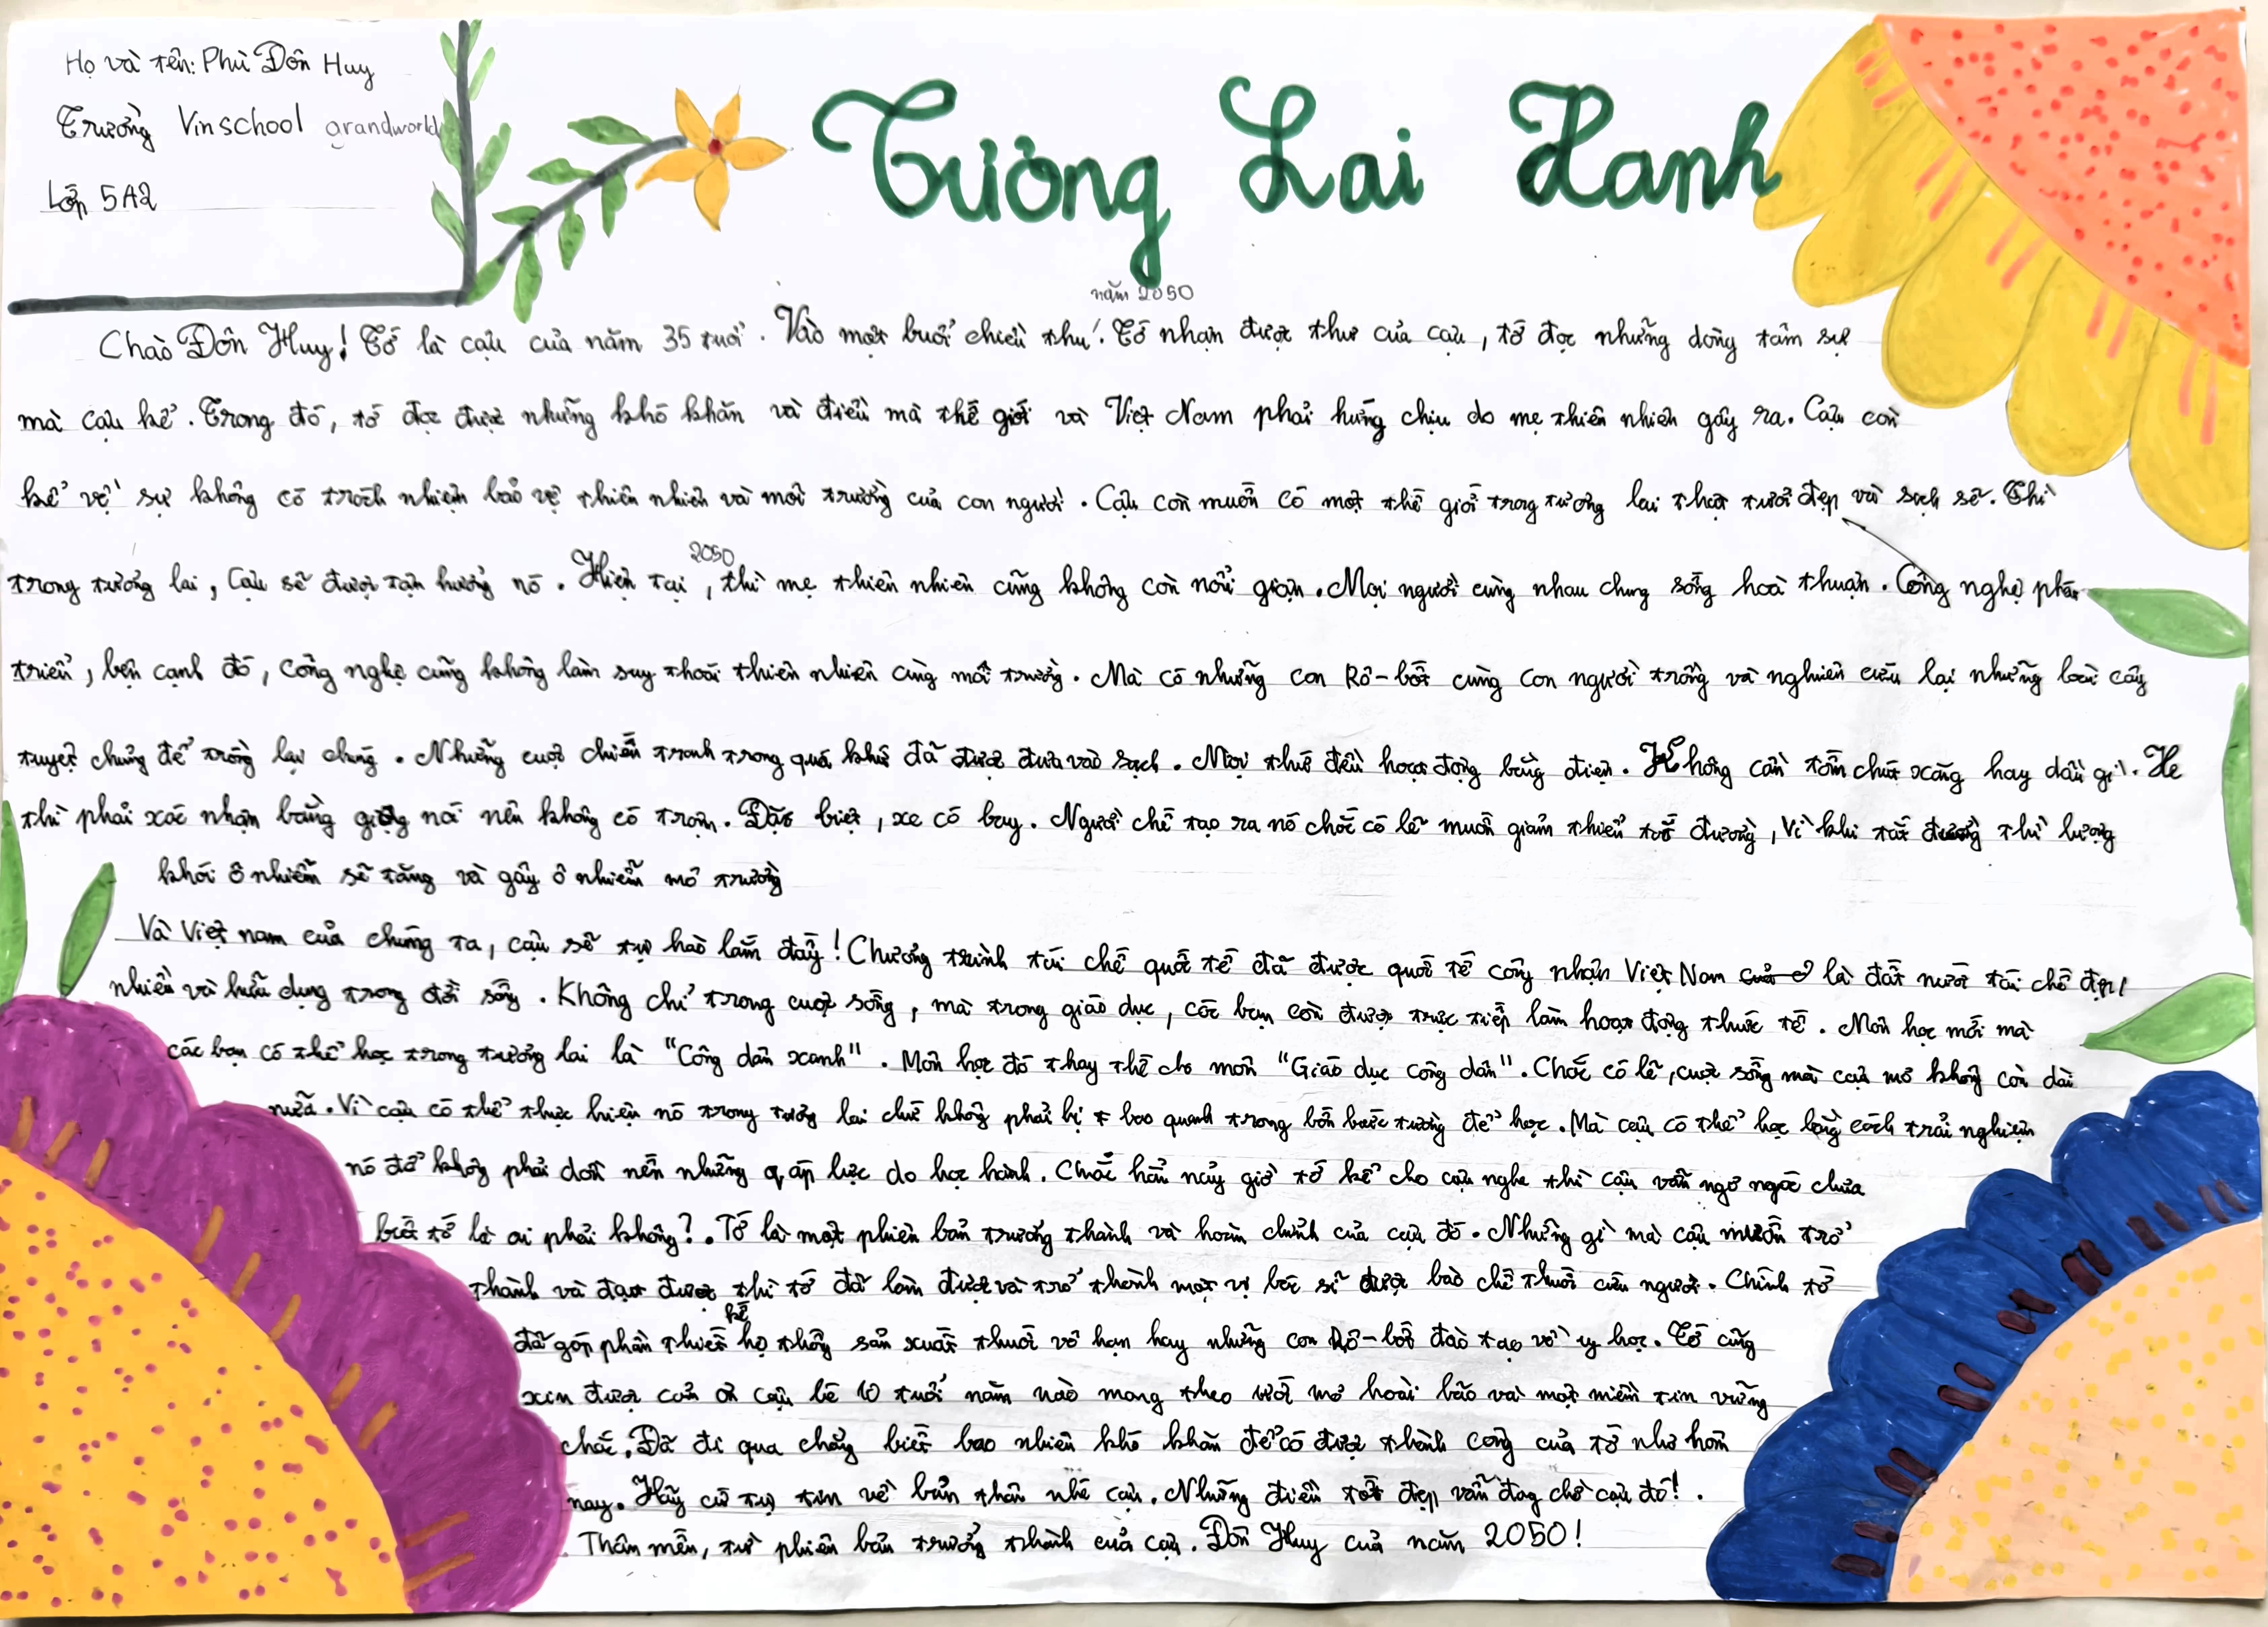 Họ và tên: Phù Đôn Huy
Trường Vinschool grandworld
Lớp 5A2
Tương Lai Xanh
năm 2050
Chào Đôn Huy! Tớ là cậu của năm 35 tuổi. Vào một buổi chiều thu. Tớ nhận được thư của cậu, tớ đọc những dòng tâm sự
mà cậu kể. Trong đó, tớ đọc được những khó khăn và điều mà thế giới và Việt Nam phải hứng chịu do mẹ thiên nhiên gây ra. Cậu còn
kể về sự không có trách nhiệm bảo vệ thiên nhiên và môi trường của con người. Cậu còn muốn có một thế giới trong tương lai thật tươi đẹp và sạch sẽ. Thì
trong tương lai, cậu sẽ được tận hưởng nó. Hiện tại 2050, thì mẹ thiên nhiên cũng không còn nổi giận. Mọi người cùng nhau chung sống hoà thuận. Công nghệ phát
triển, bên cạnh đó, công nghệ cũng không làm suy thoái thiên nhiên cùng môi trường. Mà có những con Rô-bốt cùng con người trồng và nghiên cứu lại những loài cây
tuyệt chủng để trồng lại chúng. Những cuộc chiến tranh trong quá khứ đã được đưa vào sách. Mọi thứ đều hoạt động bằng điện. Không cần tốn chút xăng hay dầu gì. Xe
thì phải xác nhận bằng giọng nói nên không có trộm. Đặc biệt, xe có bay. Người chế tạo ra nó chắc có lẽ muốn giảm thiểu tắc đường, Vì khi tắc đường thì lượng
khói ô nhiễm sẽ tăng và gây ô nhiễm mô trường
Và Việt nam của chúng ta, cậu sẽ tự hào lắm đấy! Chương trình tái chế quốc tế đã được quốc tế công nhận Việt Nam là đất nước tái chế đẹp,
nhiều và hữu dụng trong đời sống. Không chỉ trong cuộc sống, mà trong giáo dục, các bạn còn được trực tiếp làm hoạt động thực tế. Môn học mới mà
các bạn có thể học trong tương lai là "Công dân xanh". Môn học đó thay thế cho môn "Giáo dục công dân". Chắc có lẽ, cuộc sống mà cậu mơ không còn dài
nữa. Vì cậu có thể thực hiện nó trong tương lai chứ không phải bị bao quanh trong bốn bức tường để học. Mà cậu có thể học bằng cách trải nghiệm
nó để không phải dồn nén những áp lực do học hành. Chắc hẳn nãy giờ tớ kể cho cậu nghe thì cậu vẫn ngơ ngác chưa
biết tớ là ai phải không?. Tớ là một phiên bản trưởng thành và hoàn chỉnh của cậu đó. Những gì mà cậu muốn trở
thành và đạt được thì tớ đã làm được và trở thành một vị bác sĩ được bào chế thuốc cứu người. Chính tớ
đã góp phần thiết kế hệ thống sản xuất thuốc vô hạn hay những con Rô-bốt đào tạo về y học. Tớ cũng
xin được cảm ơn cậu bé 10 tuổi năm nào mang theo ước mơ hoài bão và một niềm tin vững
chắc. Đã đi qua chẳng biết bao nhiêu khó khăn để có được thành công của tớ như hôm
nay. Hãy cứ tự tin về bản thân nhé cậu. Những điều tốt đẹp vẫn đang chờ cậu đó!.
Thân mến, từ phiên bản trưởng thành của cậu. Đôn Huy của năm 2050!